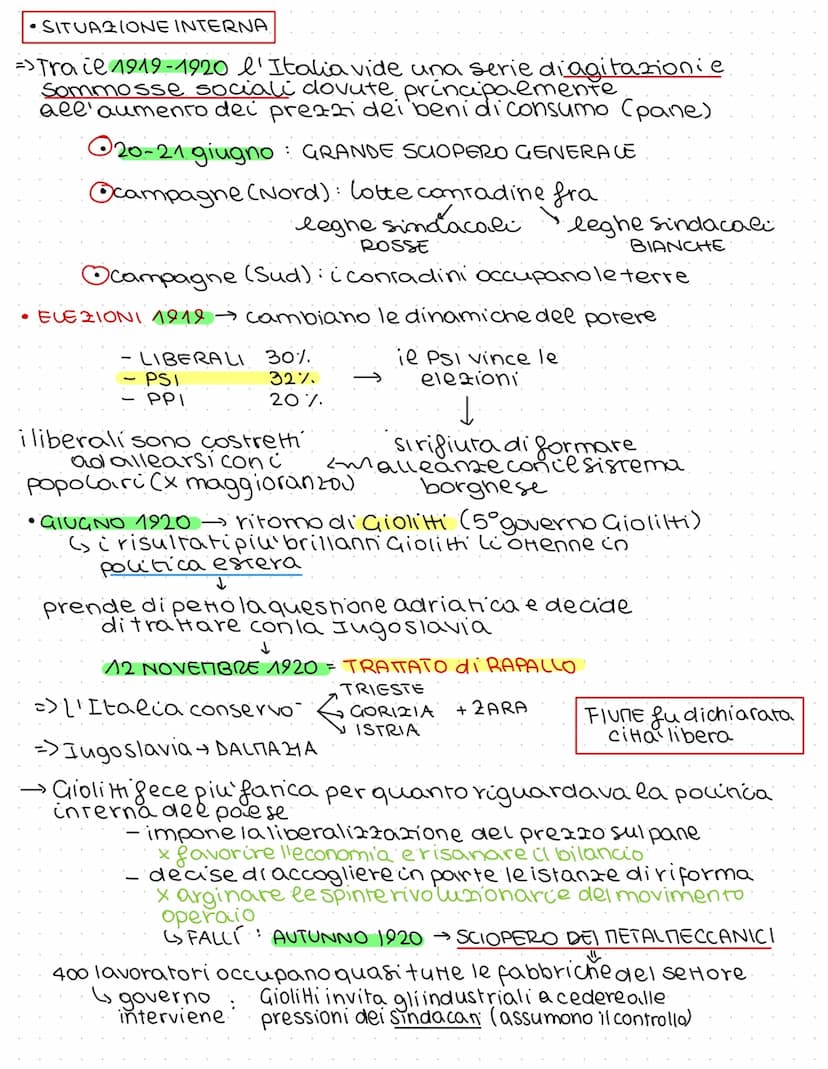 • SITUAZIONE INTERNA
=> Tra il 1919-1920 l'Italia vide una serie di agitazioni e
sommosse sociali dovute principalmente
all'aumento dei prezzi dei beni di consumo (pane)
20-21 giugno : GRANDE SCIOPERO GENERALE
campagne (Nord) : lotte contradine fra
leghe sindacali leghe sindacali
ROSSE BIANCHE
campagne (Sud) : i conradini occupano le terre
• ELEZIONI 1919 → cambiano le dinamiche del potere
- LIBERALI 30% il PSI vince le
- PSI 32% → elezioni
- PPI 20%
↓
i liberali sono costretti si rifiuta di formare
ad allearsi con i ← alleanze con il sistema
popolari (x maggioranza) borghese
• GIUGNO 1920 → ritorno di Giolitti (5° governo Giolitti)
↳ i risultati più brillanti Giolitti li ottenne in
politica estera
↓
prende di petto la questione adriatica e decide
di trattare con la Jugoslavia
↓
12 NOVEMBRE 1920 = TRATTATO di RAPALLO
TRIESTE
=> L'Italia conservò GORIZIA + ZARA
ISTRIA
FIUME fu dichiarata
città libera
=> Iugoslavia → DALMAZIA
→ Giolitti fece più fatica per quanto riguardava la politica
interna del paese
- impone la liberalizzazione del prezzo sul pane
x favorire l'economia e risanare il bilancio
- decise di accogliere in parte le istanze di riforma
x arginare le spinte rivoluzionarie del movimento
operaio
↳ FALLÍ : AUTUNNO 1920 → SCIOPERO DEI METALMECCANICI
⇓
400 lavoratori occupano quasi tutte le fabbriche del settore
↳ governo : Giolitti invita gli industriali a cedere alle
interviene pressioni dei sindacati (assumono il controllo)